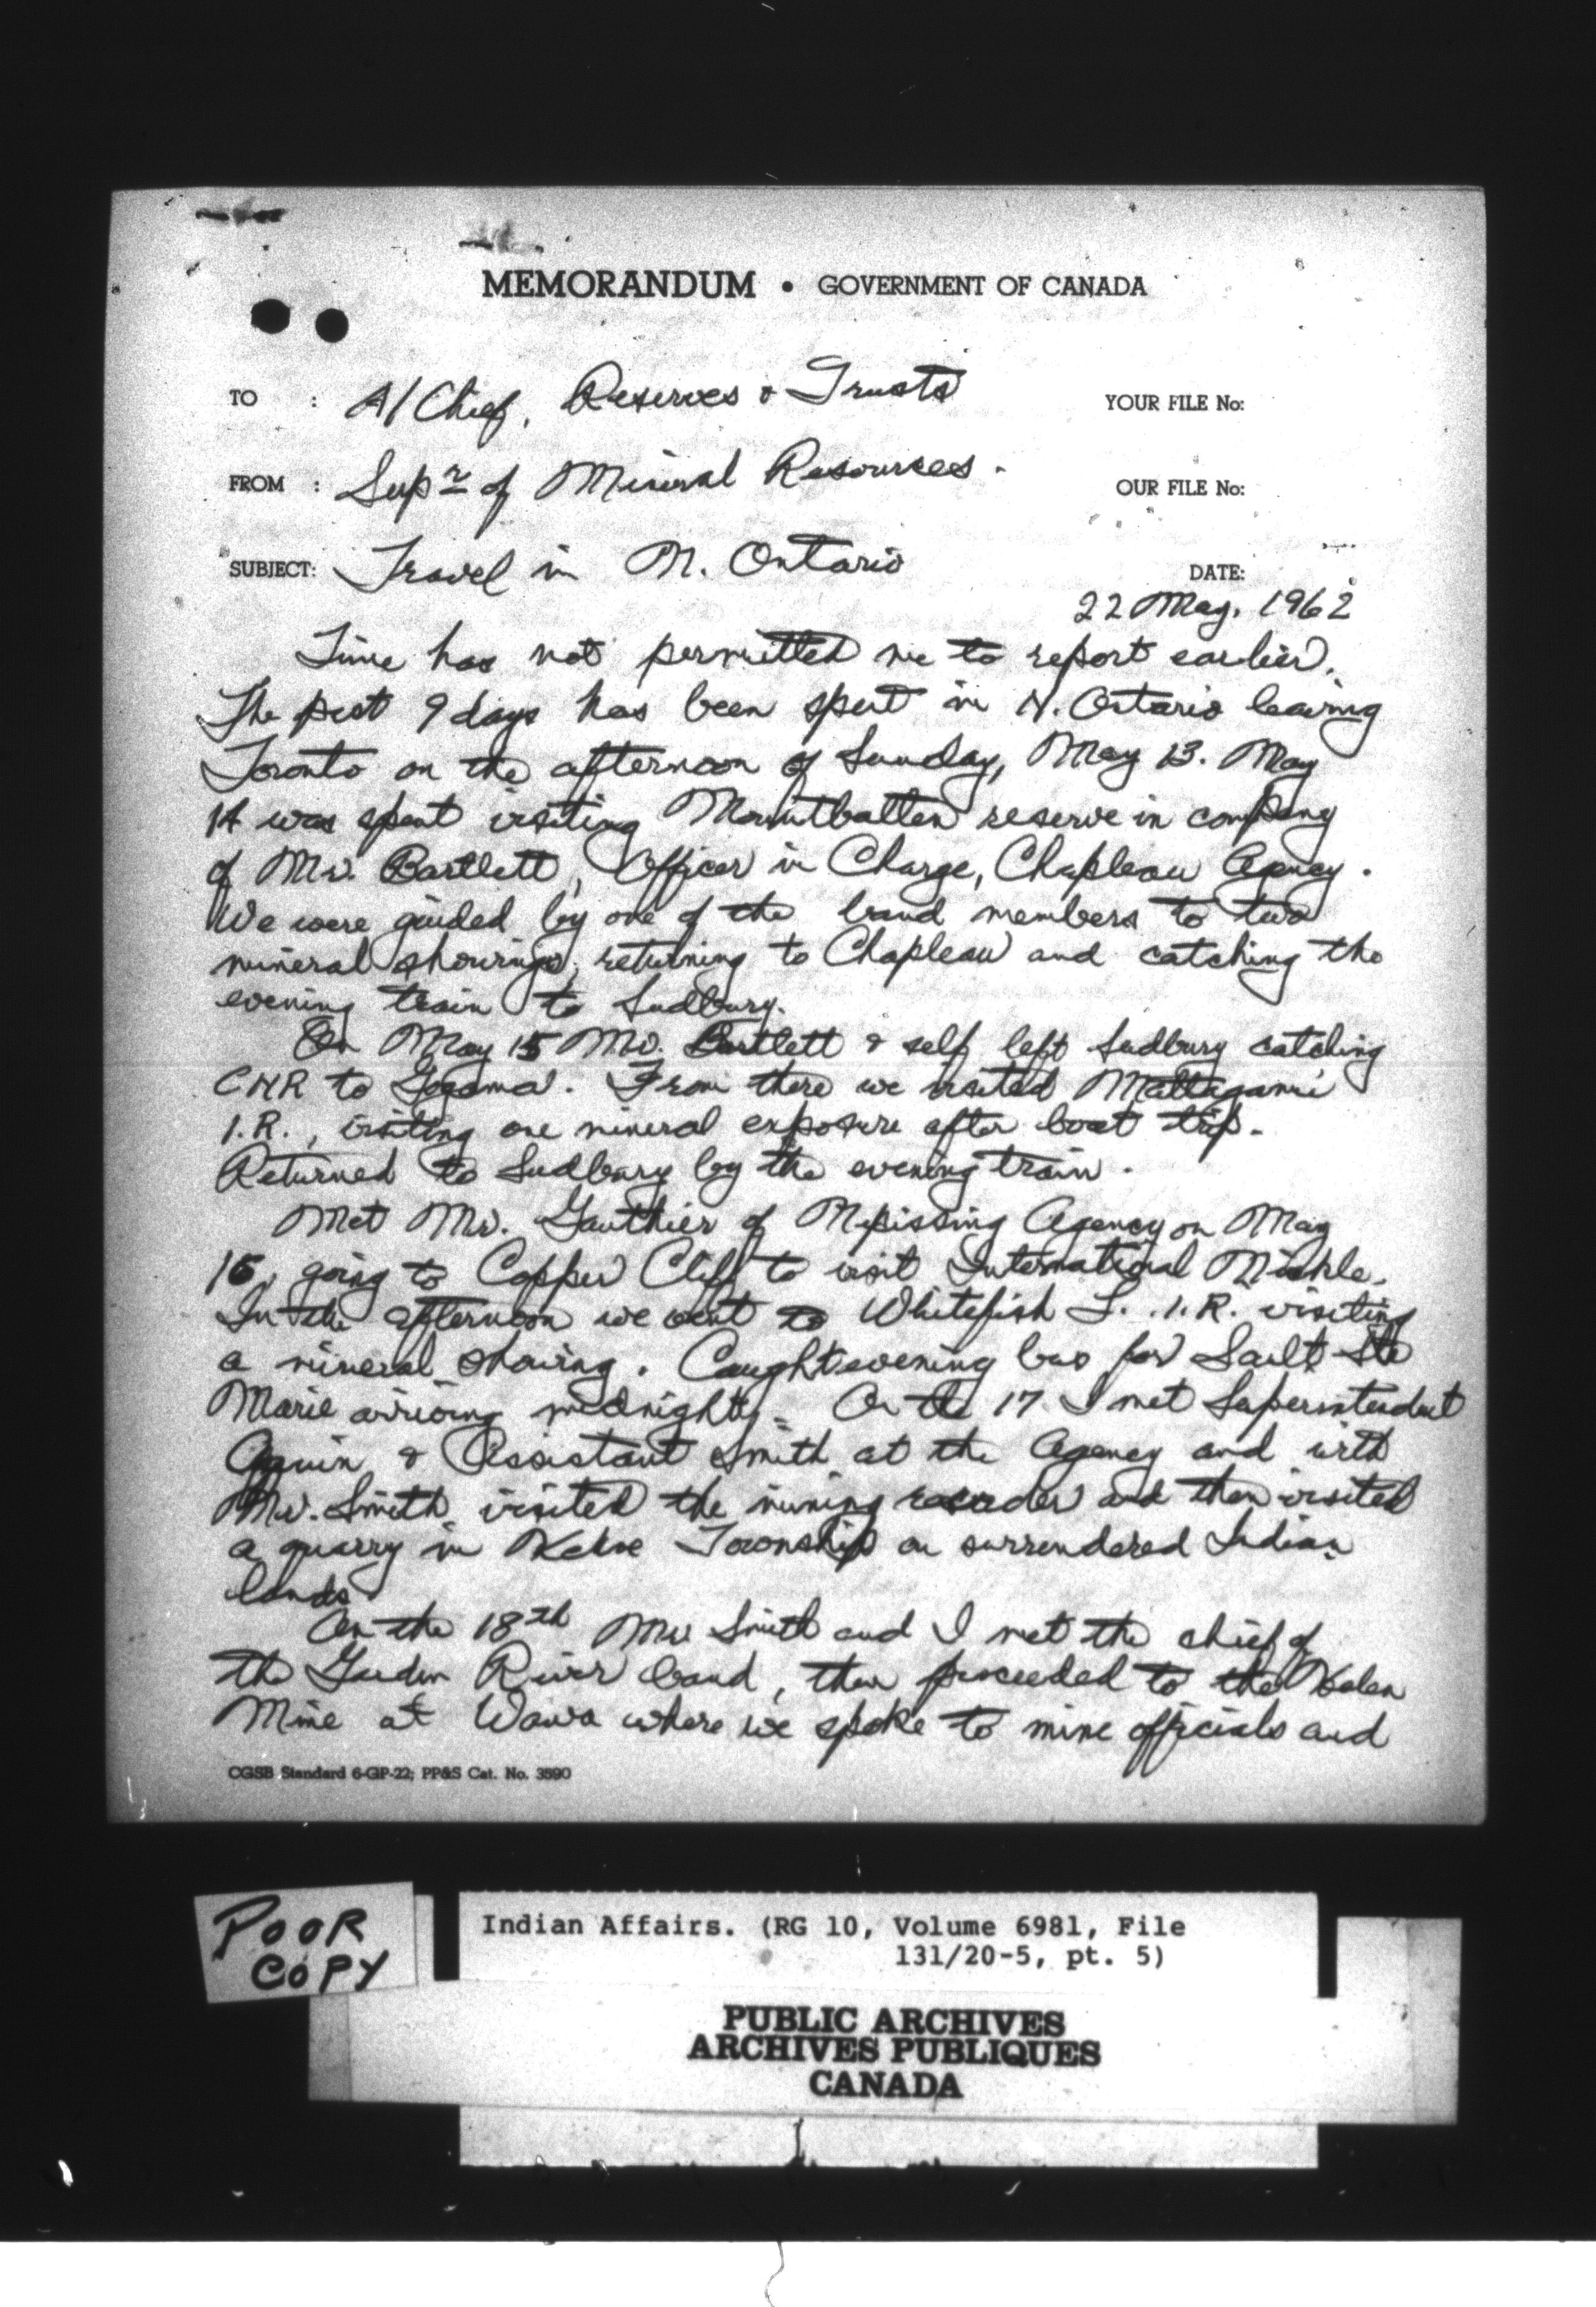 MEMORANDUM • GOVERNMENT OF CANADA
TO : A/Chief, Reserves & Trusts
YOUR FILE No:
FROM : Supr of Mineral Resources.
OUR FILE No:
SUBJECT: Travel in N. Ontario
DATE:
22 May, 1962
Time has not permitted me to report earlier.
The past 9 days has been spent in N. Ontario leaving
Toronto on the afternoon of Sunday, May 13. May
14 was spent visiting Mountbatten reserve in company
of Mr. Bartlett, Officer in Charge, Chapleau Agency.
We were guided by one of the band members to two
mineral showings, returning to Chapleau and catching the
evening train to Sudbury.
On May 15 Mr. Bartlett & self left Sudbury catching
CNR to Gogama. From there we visited Mattagami
I.R., visiting one mineral exposure after boat trip.
Returned to Sudbury by the evening train.
Met Mr. Gauthier of Nipissing Agency on May
16, going to Copper Cliff to visit International Nickle.
In the afternoon we went to Whitefish L. I.R. visiting
a mineral showing. Caught evening bus for Sault Ste
Marie arriving midnight. On the 17 I met Superintendent
& Assistant Smith at the Agency and with
Mr. Smith visited the mining recorder and then visited
a quarry in Kehoe Township on surrendered Indian
lands.
On the 18th Mr Smith and I met the chief of
the Garden River band, then proceeded to the Helen
Mine at Wawa where we spoke to mine officials and
CGSB Standard 6-GP-22; PP&S Cat. No. 3590
POOR
COPY
Indian Affairs. (RG 10, Volume 6981, File
131/20-5, pt. 5)
PUBLIC ARCHIVES
ARCHIVES PUBLIQUES
CANADA